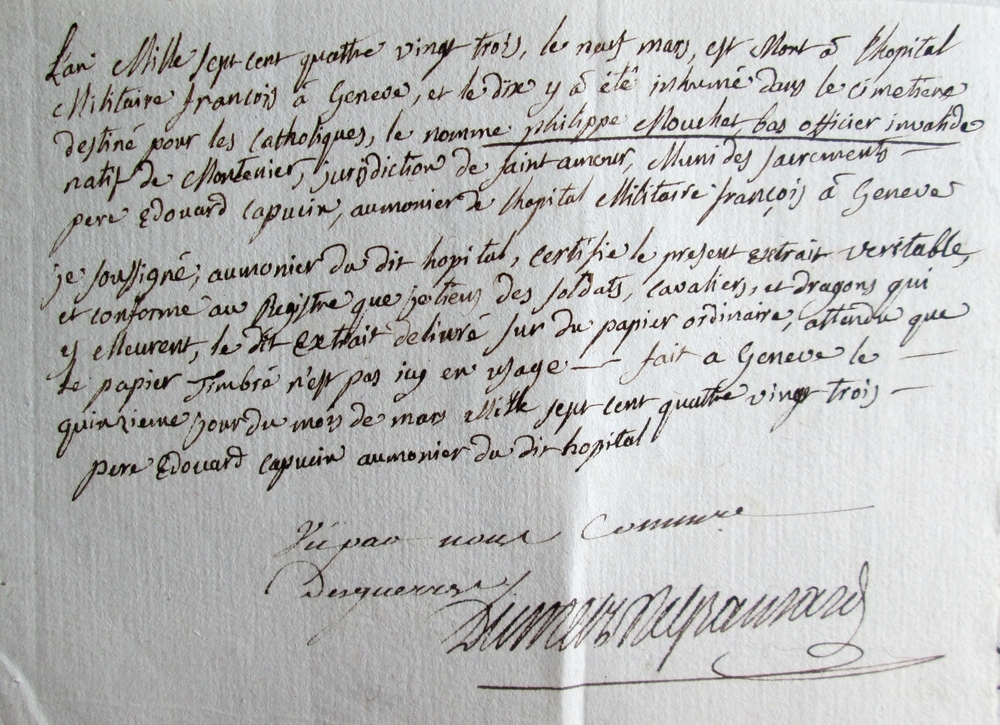 L'an Mille sept cent quatre vingt trois, le neuf mars, est Mort à l'hopital
Militaire françois à Geneve, et le dix y à été inhumé dans le cimetiere
destiné pour les Catholiques, le nommé philippe Mouchet, bas officier invalide
natif de Montenier, jurisdiction de saint amour, Muni des sacrements —
pere Edouard capucin, aumonier de l'hopital Militaire françois à Geneve
je soussigné, aumonier du dit hopital, certifie le present extrait veritable,
et conforme au Registre que je tiens des soldats, cavaliers, et dragons qui
y Meurent, le dit Extrait delivré sur du papier ordinaire, attendu que
le papier Timbré n'est pas icy en usage — fait a Geneve le —
quinzieme jour du mois de mars Mille sept cent quatre vingt trois —
pere Edouard capucin aumonier du dit hopital
Vû par nous Commre
Desguerres